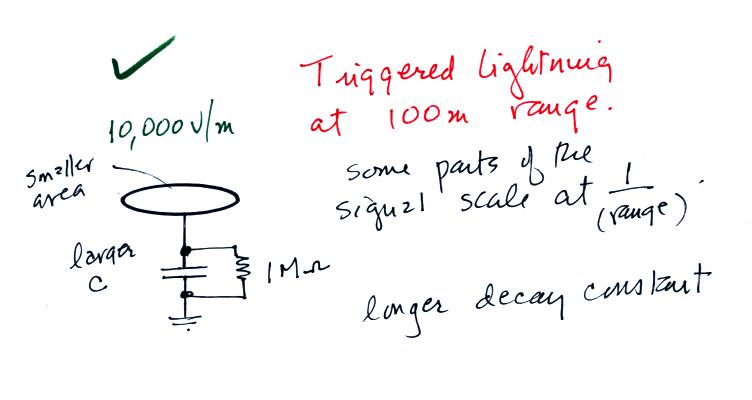 Triggered lightning
at 100m range.
10,000 V/m
smaller
area
some parts of the
signal scale at 1
(range)
larger
C
1 MΩ
longer decay constant